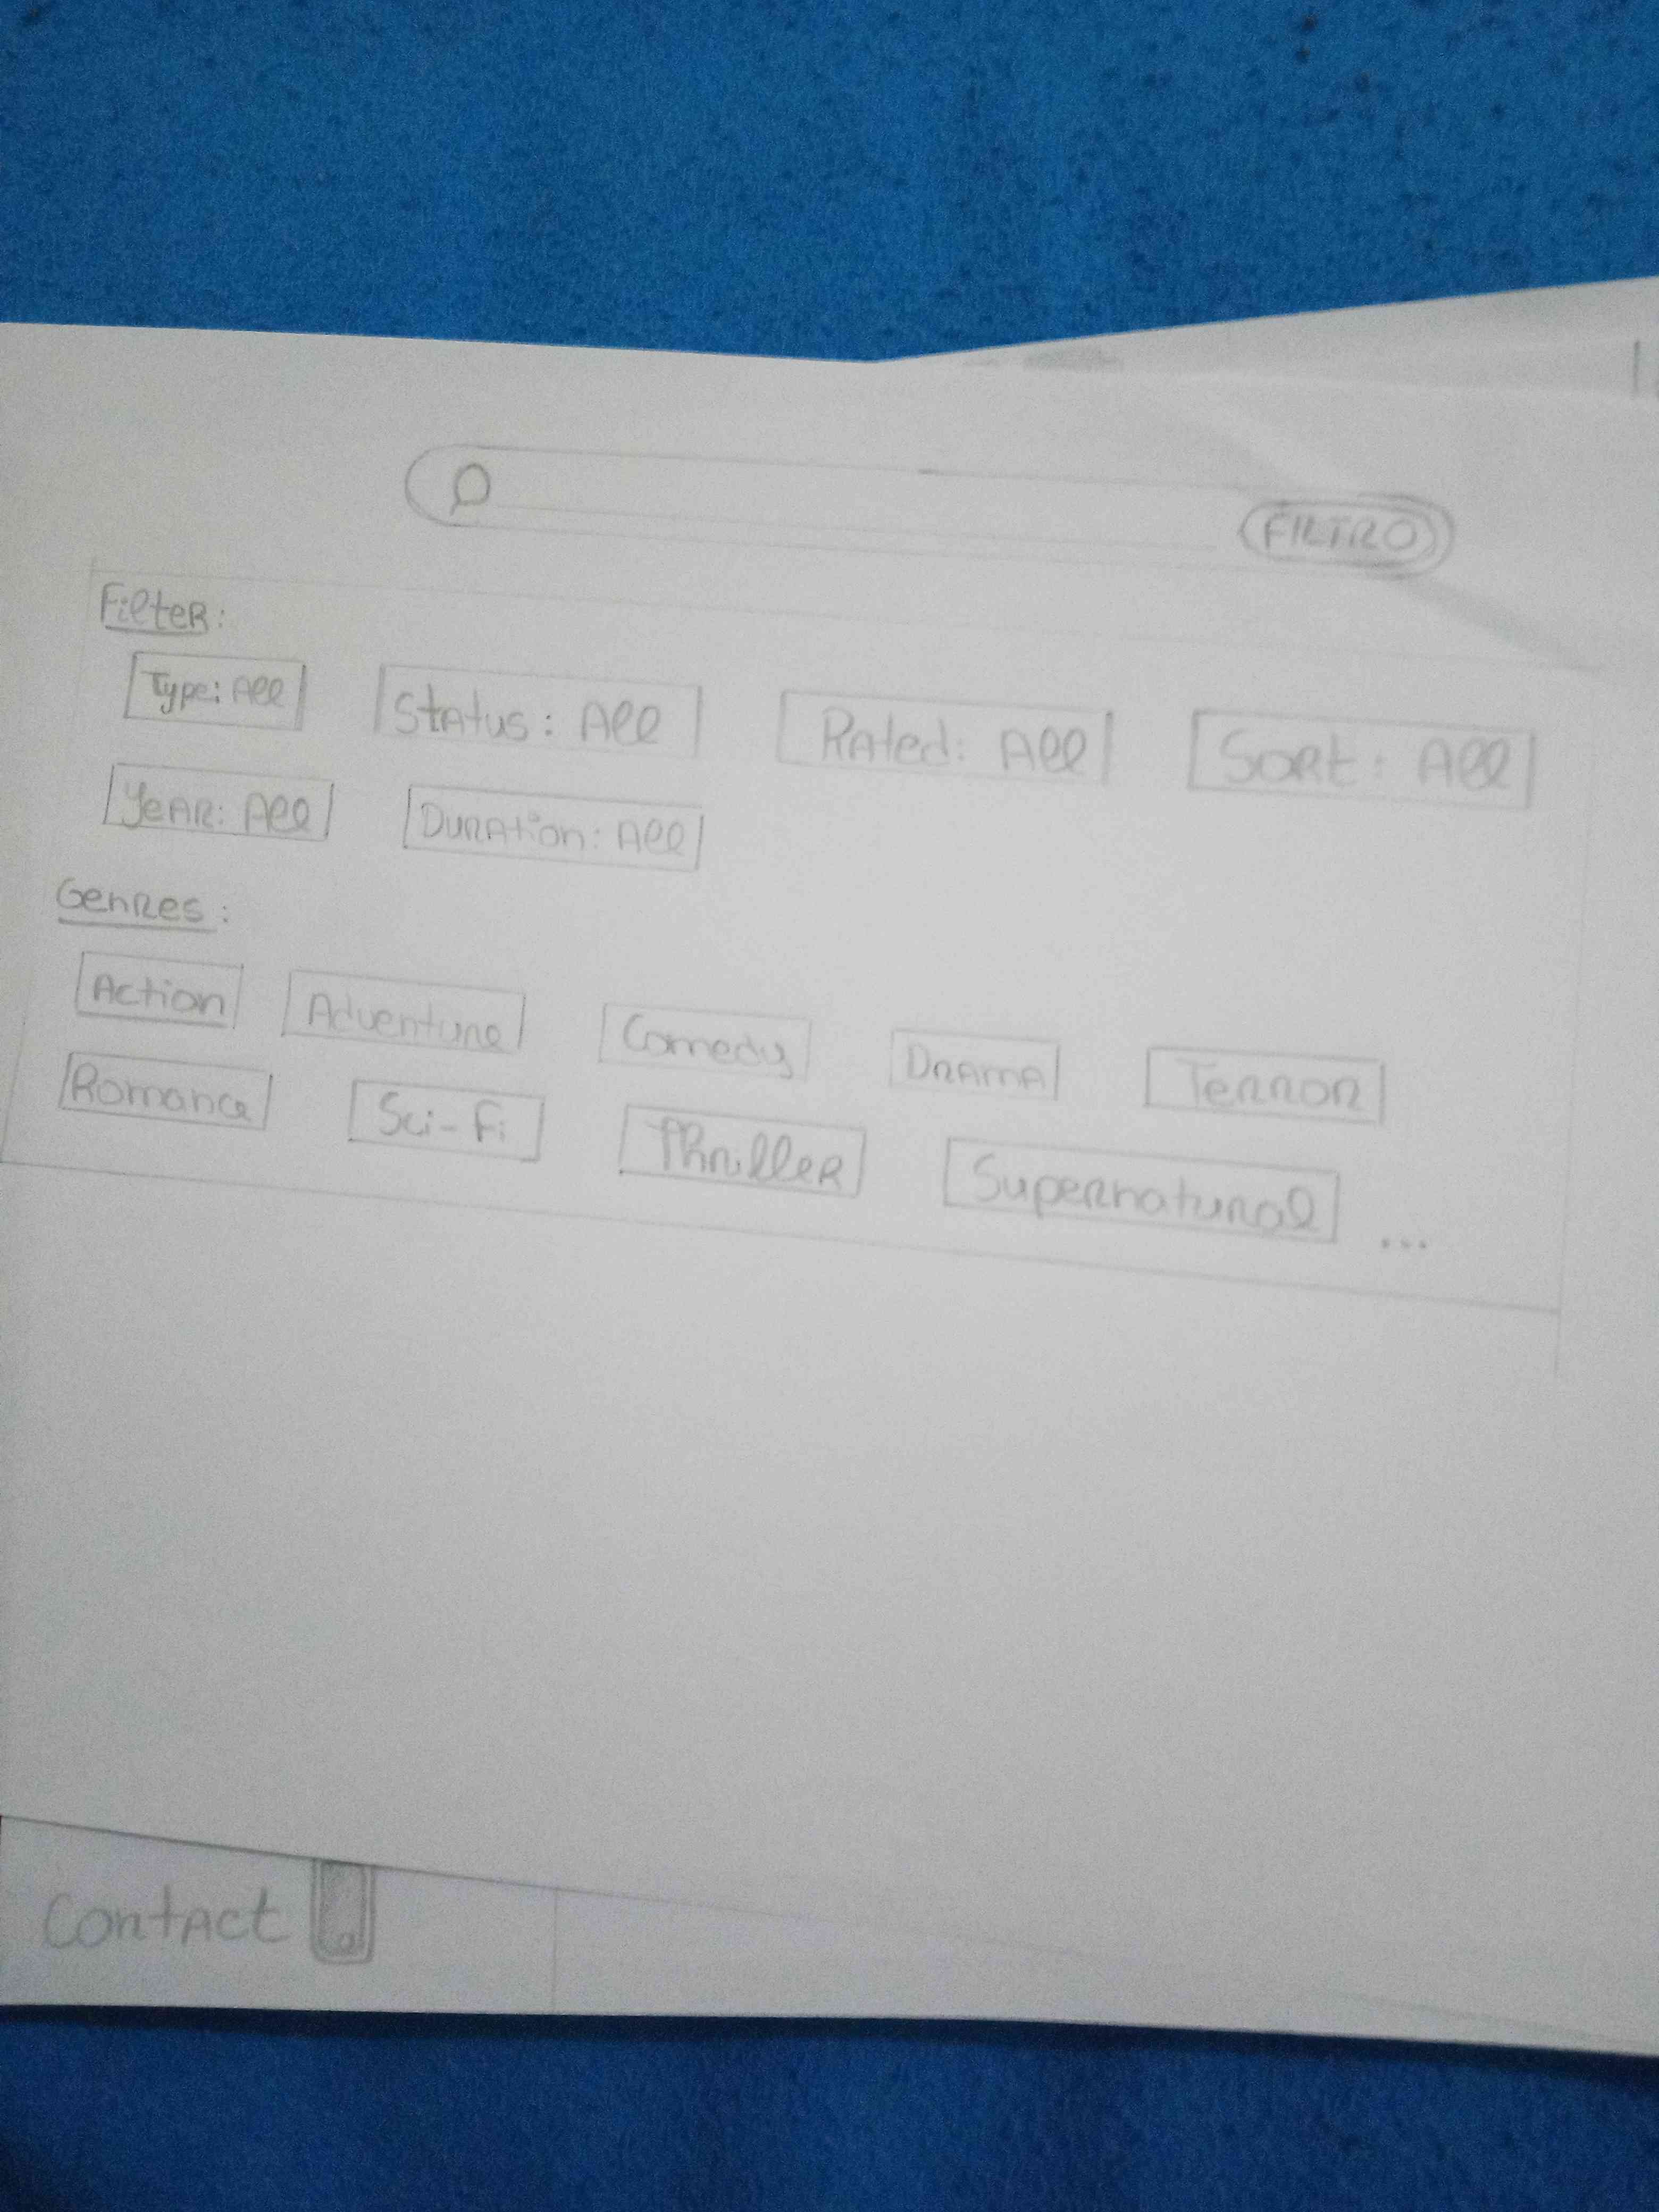 FILTRO
Filter:
Type: All Status: All Rated: All Sort: All
Year: All Duration: All
Genres:
Action Adventure Comedy Drama Terror
Romance Sci-Fi Thriller Supernatural ...
Contact